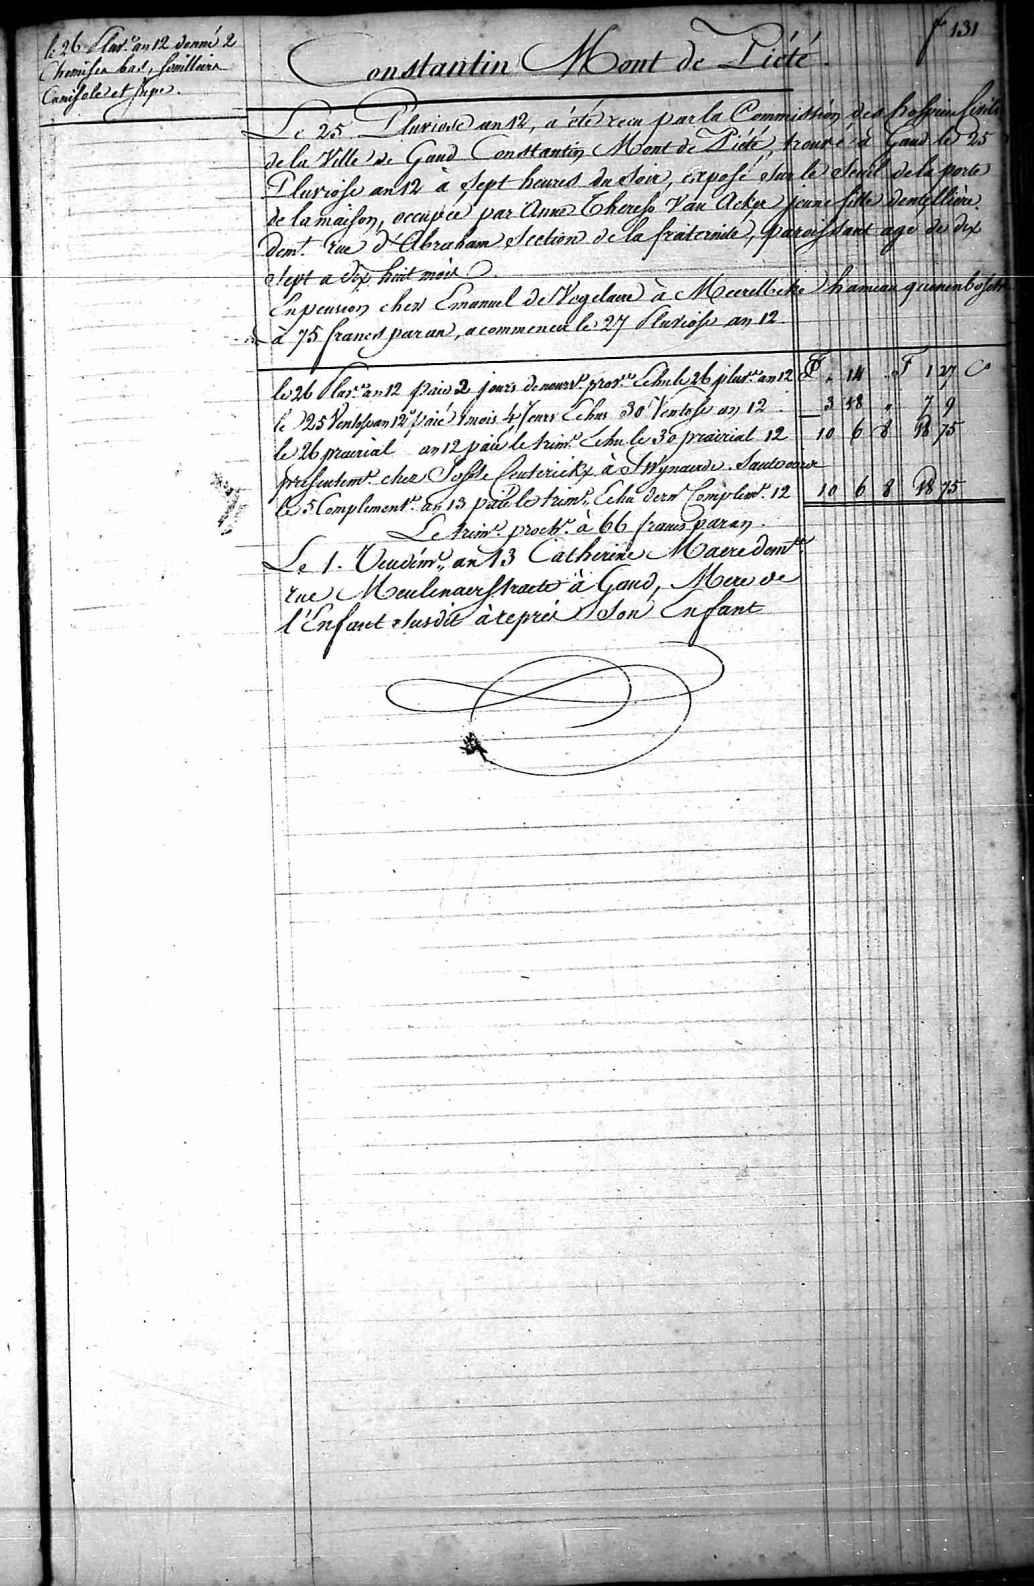 f 131
le 26 Pluv.e an 12 donné 2
Chemises bas, 
Camisole et Jupe.
Constantin Mont de Piété.
Le 25. Pluviose an 12, a été recu par la Commission des hospices Civils
de la Ville de Gand Constantin Mont de Piété, trouvé à Gand le 25
Pluviose an 12 à Sept heures du Soir, exposé sur le Seuil de la porte
de la maison, occupée par Anne Therese Van Acker jeune fille dentellière
demt. rue d'Abraham Section de la fraternité, paroissant agé de dix
Sept a dix huit mois.
En pension chez Emanuel de Vogelaere à Meerelbeke hameau
à 75 francs par an, a commencer le 27 Pluviose an 12.
le 26 Pluv.se an 12 paié 2 jours de nourr.e prov.re Echu le 26 pluv.se an 12 £ " 14 " F 1 27 C
le 25 Ventose an 12 paié 1 mois 4 Jours Echus 30 Ventose an 12 3 18 " 7 9
le 26 prairial an 12 paié le trim.e Echu le 30 prairial 12 10 6 8 18 75
presentem.t chez Josse à Swynaerde.
le 5 Complement.e an 13 paié le trim.e Echu dern.r Complem.e 12 10 6 8 18 75
Le trim.e proch.n à 66 francs par an.
Le 1. Vendém.re an 13 Catherine Maere demt.
rue Meulenaerstraete à Gand, Mere de
l'Enfant susdit à repris Son Enfant